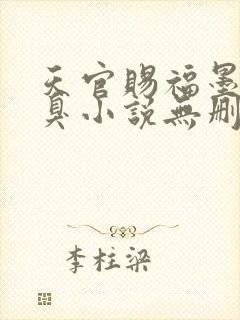 天官賜福墨
臭小說無刪
李柱梁